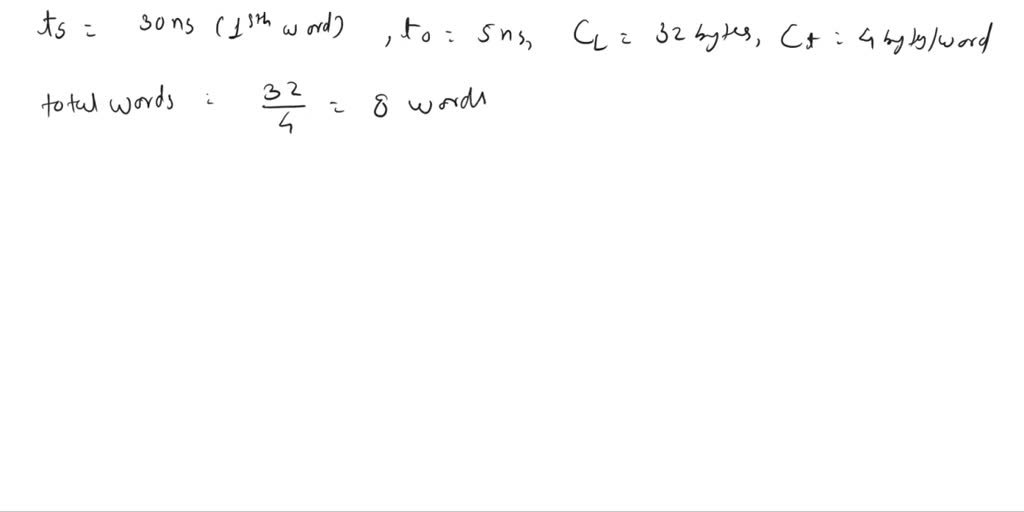 ts = 30ns (1sth word), to = 5ns, CL = 32 bytes, Ct = 4 byts/word
total words = 32/4 = 8 words